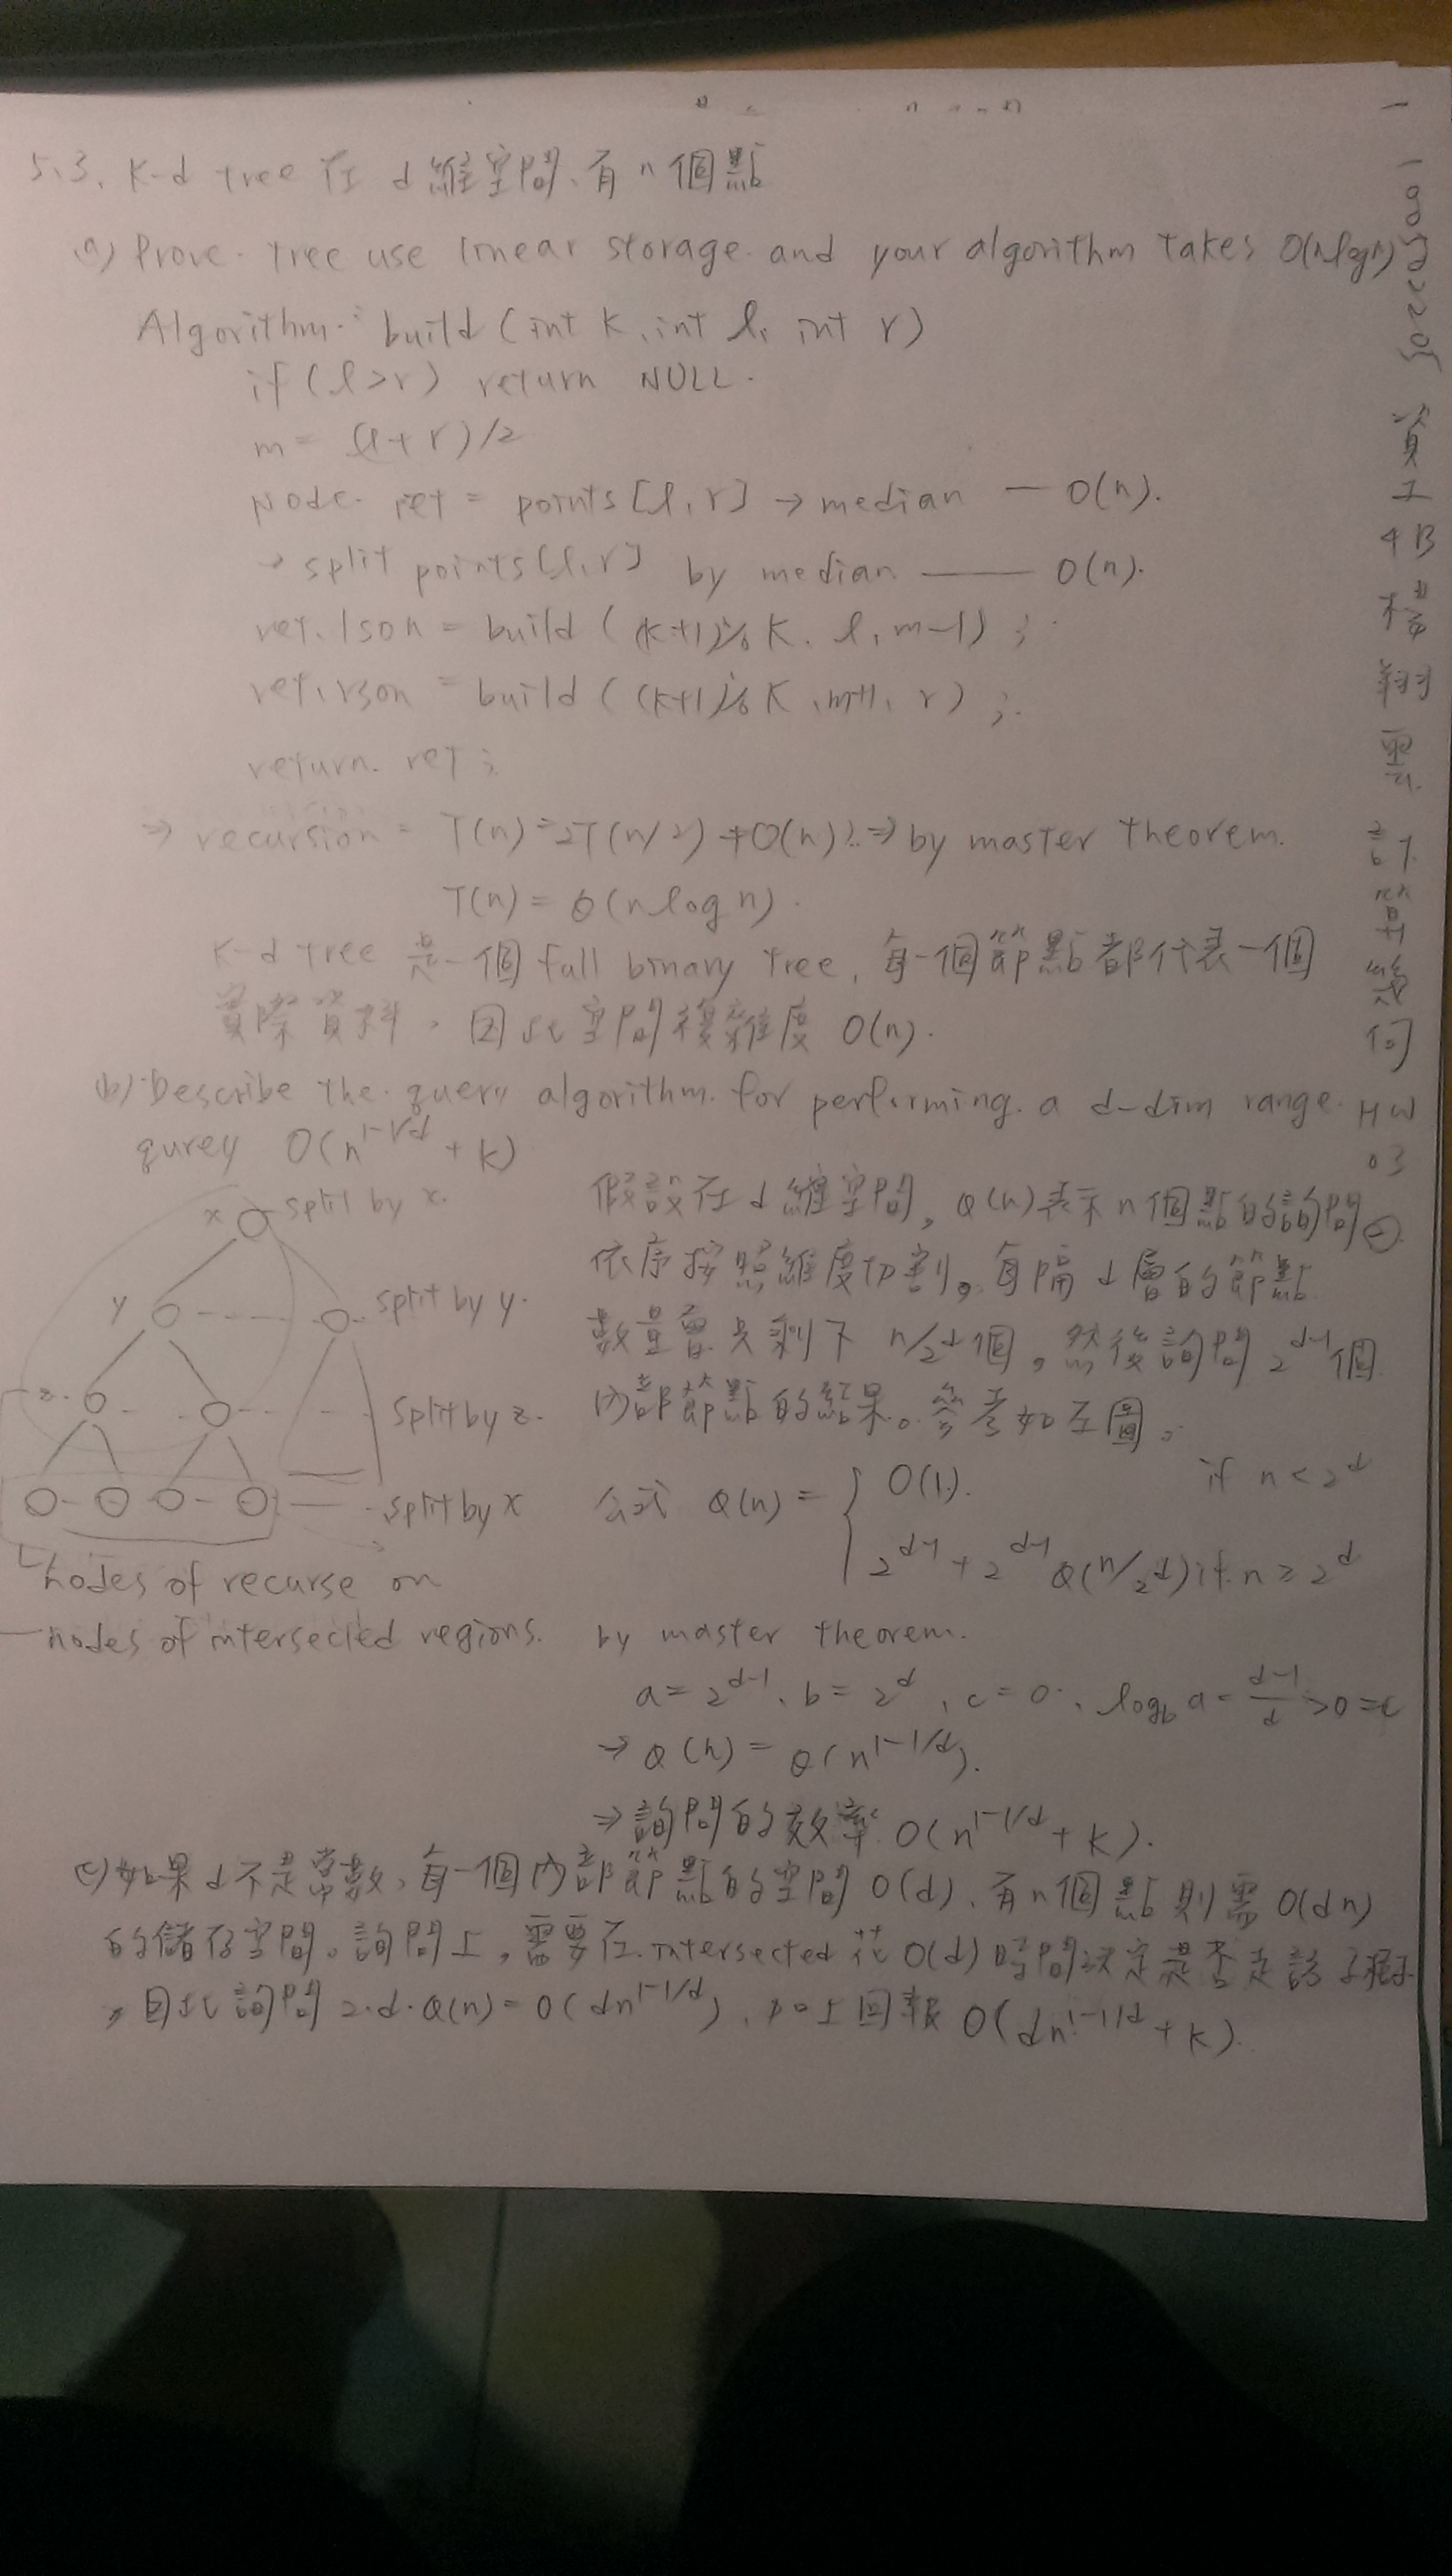 5.3. K-d tree 在 d 維空間、有 n 個點
a) Prove. tree use linear storage. and your algorithm takes O(nlogn)
Algorithm: build (int k, int l, int r)
if (l>r) return NULL.
m = (l+r)/2
Node. ret = points[l,r] → median — O(n).
→ split points[l,r] by median —— O(n).
ret.lson = build ((k+1)%K, l, m-1);
ret.rson = build ((k+1)%K, m+1, r);
return. ret;
⇒ recursion = T(n)=2T(n/2)+O(n) ⇒ by master theorem.
T(n) = θ(n log n).
K-d tree 是一個 full binary tree, 每一個節點都代表一個
實際資料, 因此空間複雜度 O(n).
(b) Describe the query algorithm for performing a d-dim range
qurey O(n^1-1/d + k)
x split by x.
y split by y.
z. split by z.
split by x
nodes of recurse on
nodes of intersected regions.
假設在 d 維空間, Q(n)表示 n 個點的詢問
依序按照維度切割。每隔 d 層的節點
數量會只剩下 n/2^d 個, 然後詢問 2^d-1 個
內部節點的結果。參考如左圖。
公式 Q(n) = { O(1). if n < 2^d
2^d-1 + 2^d-1 Q(n/2^d) if n ≥ 2^d
by master theorem.
a = 2^d-1, b = 2^d, c = 0, log_b a = d-1/d > 0 = c
→ Q(n) = θ(n^1-1/d).
⇒ 詢問的效率 O(n^1-1/d + k).
c) 如果 d 不是常數, 每一個內部節點的空間 O(d), 有 n 個點則需 O(dn)
的儲存空間。詢問上, 需要在 intersected 花 O(d) 時間決定是否走訪子樹
, 因此詢問 2·d·Q(n) = O(dn^1-1/d), 加上回報 O(dn^1-1/d + k).
資工4B
翔雲
計算幾何
HW
03